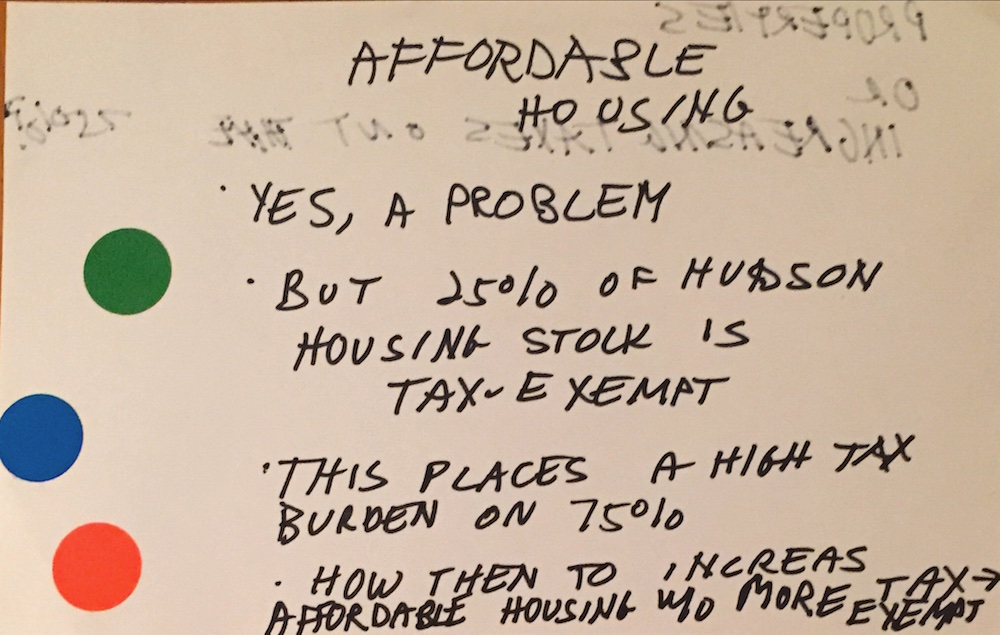 AFFORDABLE
HOUSING
· YES, A PROBLEM
· BUT 25% OF HUDSON
HOUSING STOCK IS
TAX-EXEMPT
· THIS PLACES A HIGH TAX
BURDEN ON 75%
· HOW THEN TO INCREAS
AFFORDABLE HOUSING W/O MORE TAX→
EXEMPT
PROPERTIES
OR
INCREASING TAXES ON THE 75%?